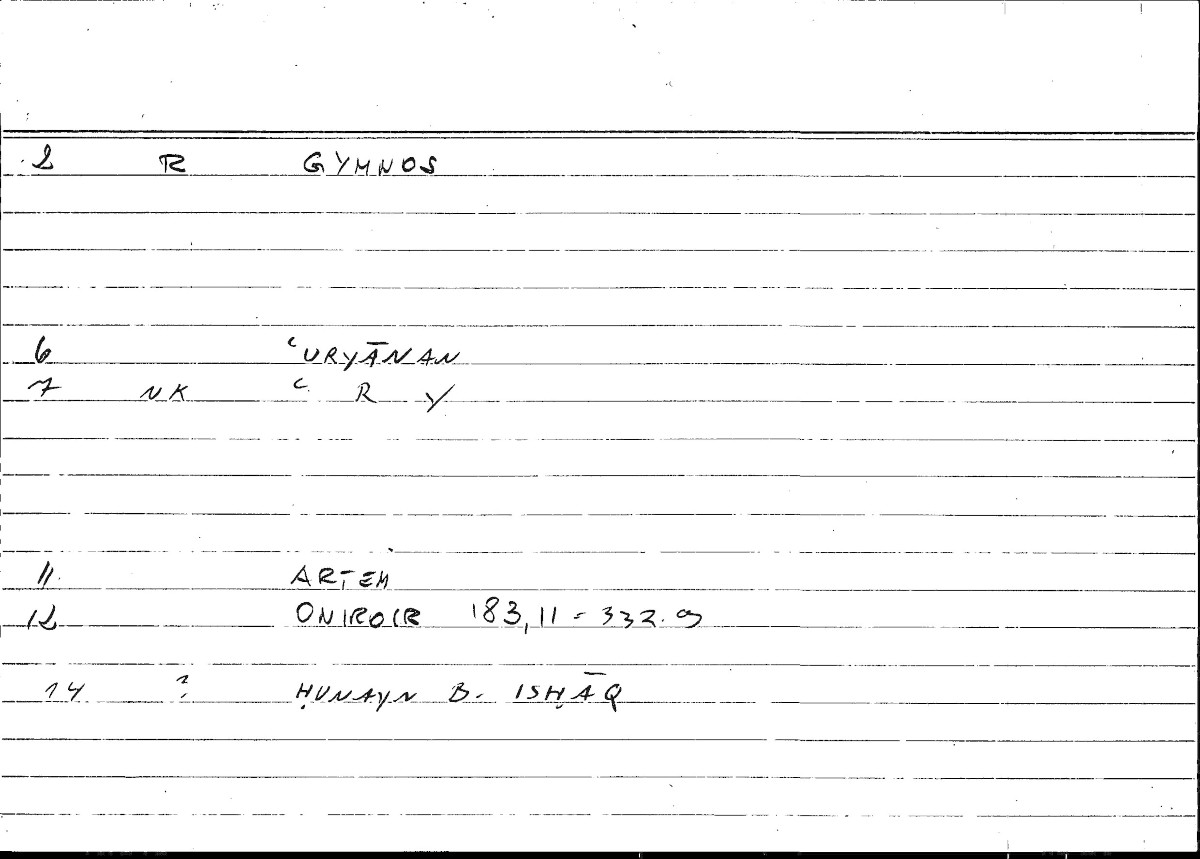 2 R GYMNOS
6 ʿURYĀNAN
7 NK ʿ R Y
11 ARTEM
12 ONIROCR 183,11 = 332.9
14 ? ḤUNAYN B. ISḤĀQ